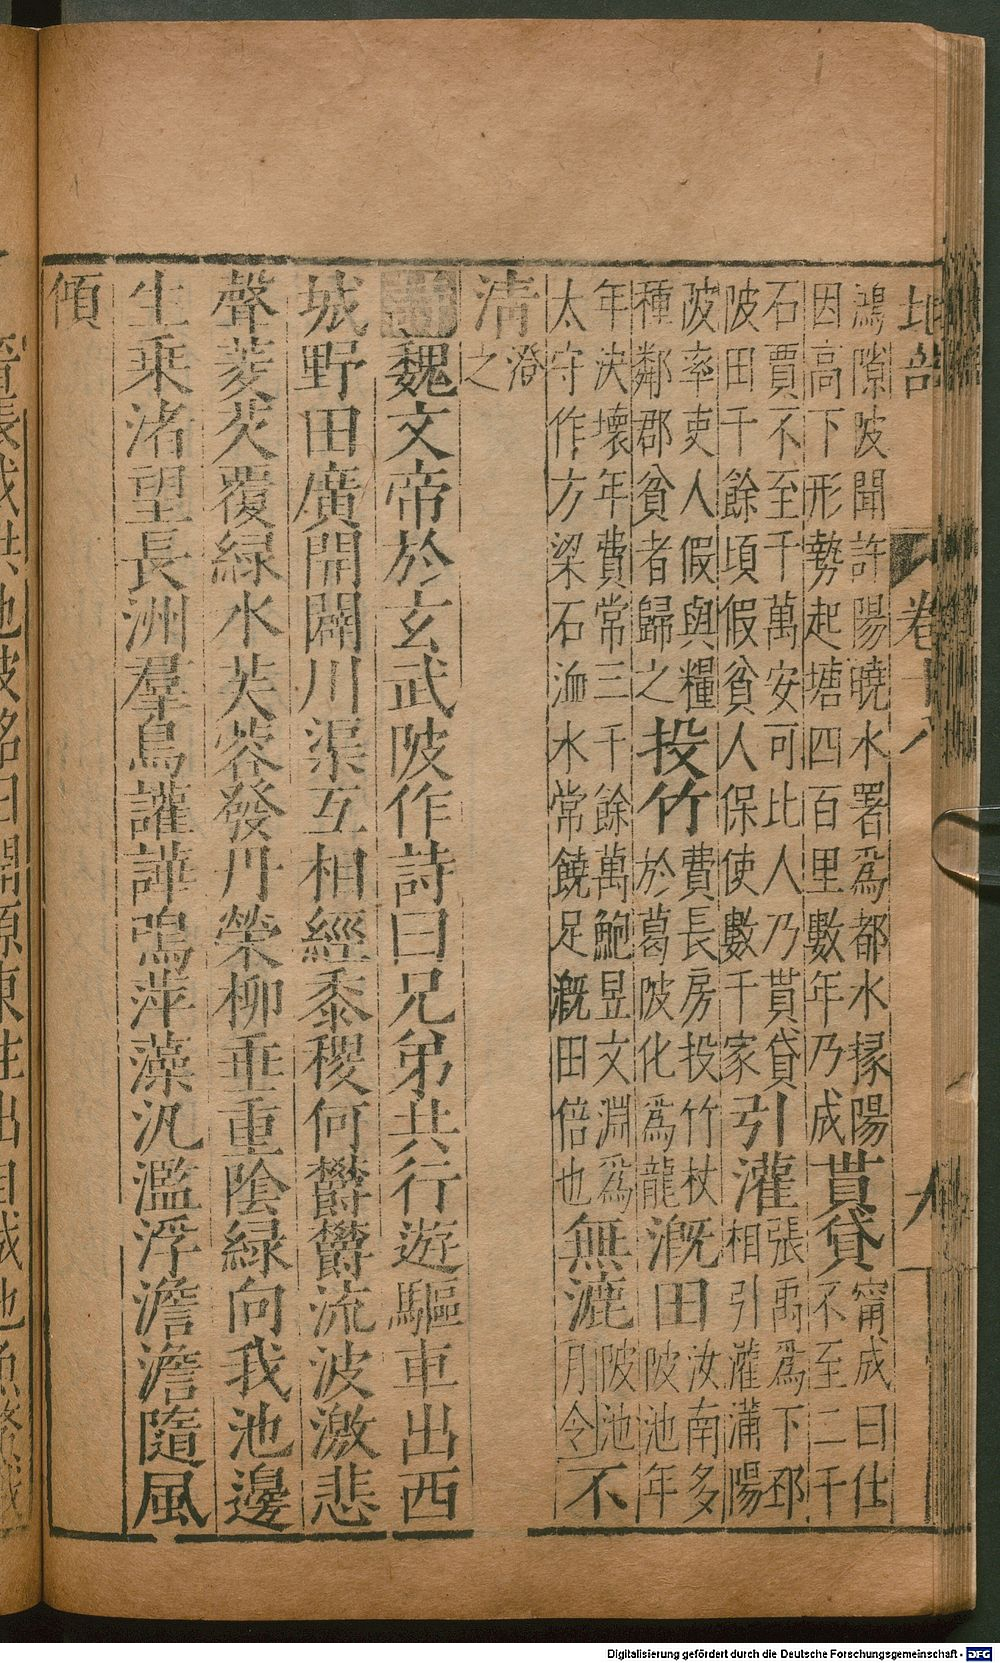 地部 卷十八
鴻隙陂聞許陽曉水署爲都水掾陽因高下形勢起塘四百里數年乃成貰貸甯成曰仕不至二千
石賈不至千萬安可比人乃貰貸陂田千餘頃假貧人保使數千家引灌張禹爲下邳相引灌蒲陽
陂率吏人假與糧種鄰郡貧者歸之投竹費長房投竹杖於葛陂化爲龍溉田汝南多陂池年
年決壞年費常三千餘萬鮑昱文淵爲太守作方梁石洫水常饒足溉田倍也無漉陂池月令不
清澄之
詩魏文帝於玄武陂作詩曰兄弟共行遊驅車出西
城野田廣開闢川渠互相經黍稷何鬱鬱流波激悲
聲菱芡覆綠水芙蓉發丹榮柳垂重陰綠向我池邊
生乘渚望長洲羣鳥讙譁鳴萍藻汎濫浮澹澹隨風
傾
Digitalisierung gefördert durch die Deutsche Forschungsgemeinschaft - DFG